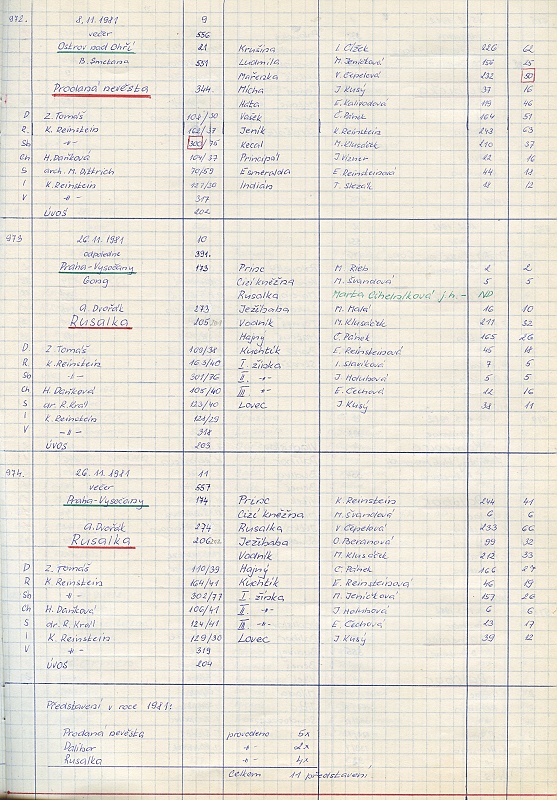 972. 8.11.1981 9
večer 556
Ostrov nad Ohří 21 Krušina I. Čížek 226 62
B. Smetana 551 Ludmila M. Jeníčková 156 25
Mařenka V. Čepelová 232 50
Prodaná nevěsta 344. Mícha J. Kusý 37 16
Háta E. Kalivodová 119 46
D Z. Tomáš 108/30 Vašek Č. Pánek 164 51
R. K. Reinstein 162/37 Jeník K. Reinstein 243 63
Sb -"- 300/75 Kecal M. Klusáček 210 37
Ch H. Daňková 104/37 Principál J. Vizner 22 16
S arch. M. Dittrich 70/59 Esmeralda E. Reinsteinová 44 13
I K. Reinstein 127/30 Indian T. Slezák 18 12
V -"- 317
ÚVOS 202
973 26.11.1981 10
odpoledne 391.
Praha-Vysočany 173 Princ M. Rieb 2 2
Gong Cizí kněžna M. Švandová 5 5
Rusalka Marta Cihelníková j.h. - ND
A. Dvořák 273 Ježibaba M. Malá 16 10
Rusalka 205 Vodník M. Klusáček 211 32
Hajný Č. Pánek 165 26
D Z. Tomáš 109/38 Kuchtík E. Reinsteinová 45 18
R. K. Reinstein 163/40 I. žínka I. Slavíková 7 5
Sb -"- 301/76 II. -"- J. Holubová 5 5
Ch H. Daňková 105/40 III -"- E. Čechová 12 16
S dr. R. Král 123/40 Lovec J. Kusý 38 11
I K. Reinstein 128/29
V -"- 318
ÚVOS 203
974. 26.11.1981 11
večer 557
Praha-Vysočany 174 Princ K. Reinstein 244 41
Cizí kněžna M. Švandová 6 6
A. Dvořák 274 Rusalka V. Čepelová 233 66
Rusalka 206 Ježibaba O. Beranová 99 32
Vodník M. Klusáček 212 33
D Z. Tomáš 110/39 Hajný Č. Pánek 166 27
R K. Reinstein 164/41 Kuchtík E. Reinsteinová 46 19
Sb -"- 302/77 I. žínka M. Jeníčková 157 26
Ch H. Daňková 106/41 II -"- J. Holubová 6 6
S dr. R. Král 124/41 III -"- E. Čechová 13 17
I K. Reinstein 129/30 Lovec J. Kusý 39 12
V -"- 319
ÚVOS 204
Představení v roce 1981:
Prodaná nevěsta provedeno 5x
Dalibor -"- 2x
Rusalka -"- 4x
Celkem 11 představení